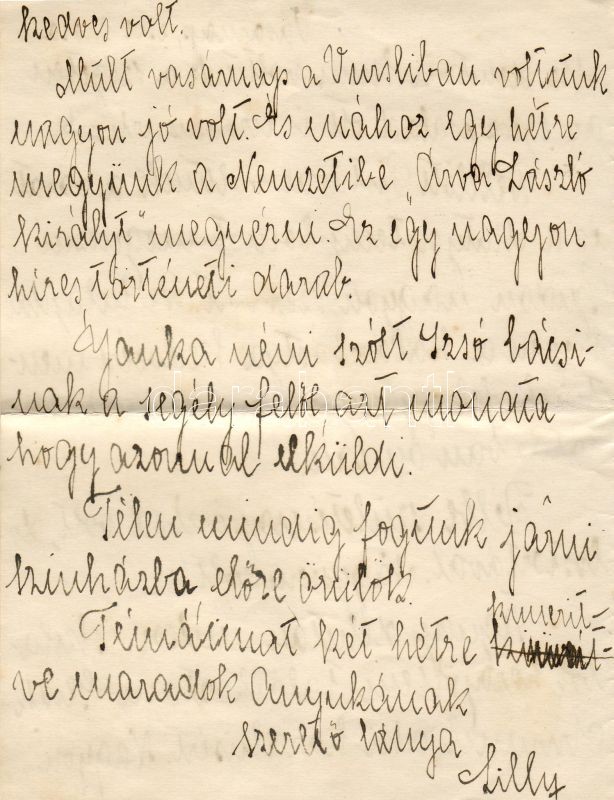 kedves volt.
Mult vasárnap a Vursliban voltunk
nagyon jó volt. És mához egy hétre
megyünk a Nemzetibe „Árva László
királyt" megnézni. Ez egy nagyon
hires történeti darab.
Janka néni szólt Izsó bácsi-
nak a segély felől azt mondta
hogy azonnal elküldi.
Télen mindig fogunk járni
szinházba előre örülök.
Témáimat két hétre kimerit-
ve maradok Anyukának
szerető lánya
Lilly